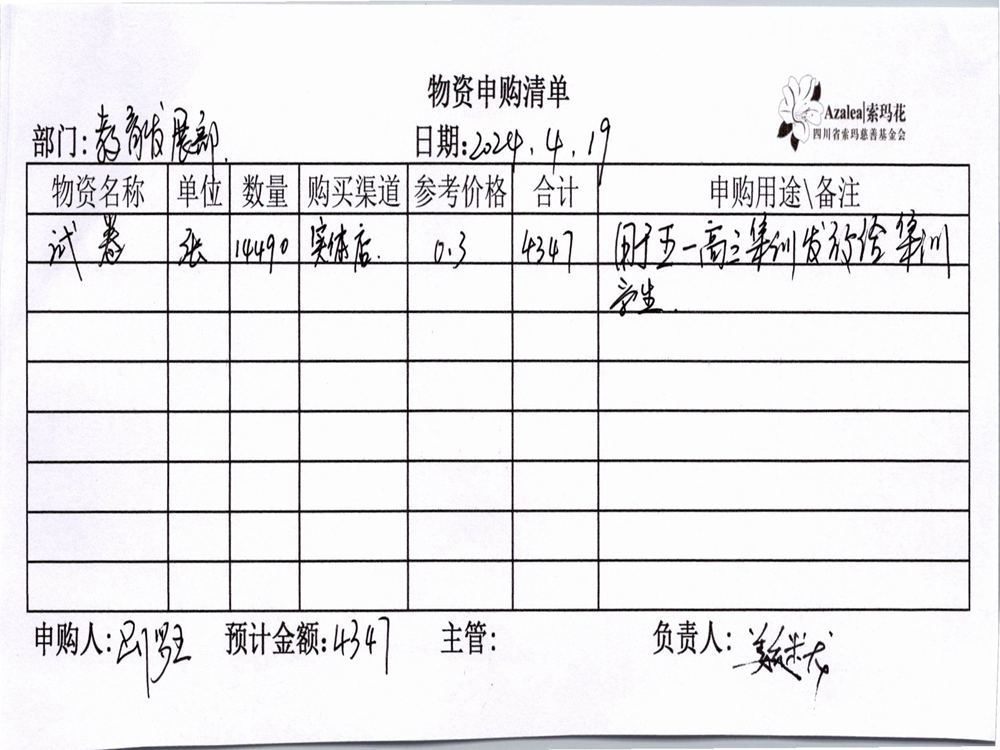 物资申购清单
Azalea|索玛花
四川省索玛慈善基金会
部门:教育发展部.
日期:2024.4.19
物资名称 单位 数量 购买渠道 参考价格 合计 申购用途\备注
试卷 张 14490 实体店. 0.3 4347 用于五一高三集训发放给集训
学生.
申购人: 预计金额:4347 主管: 负责人: